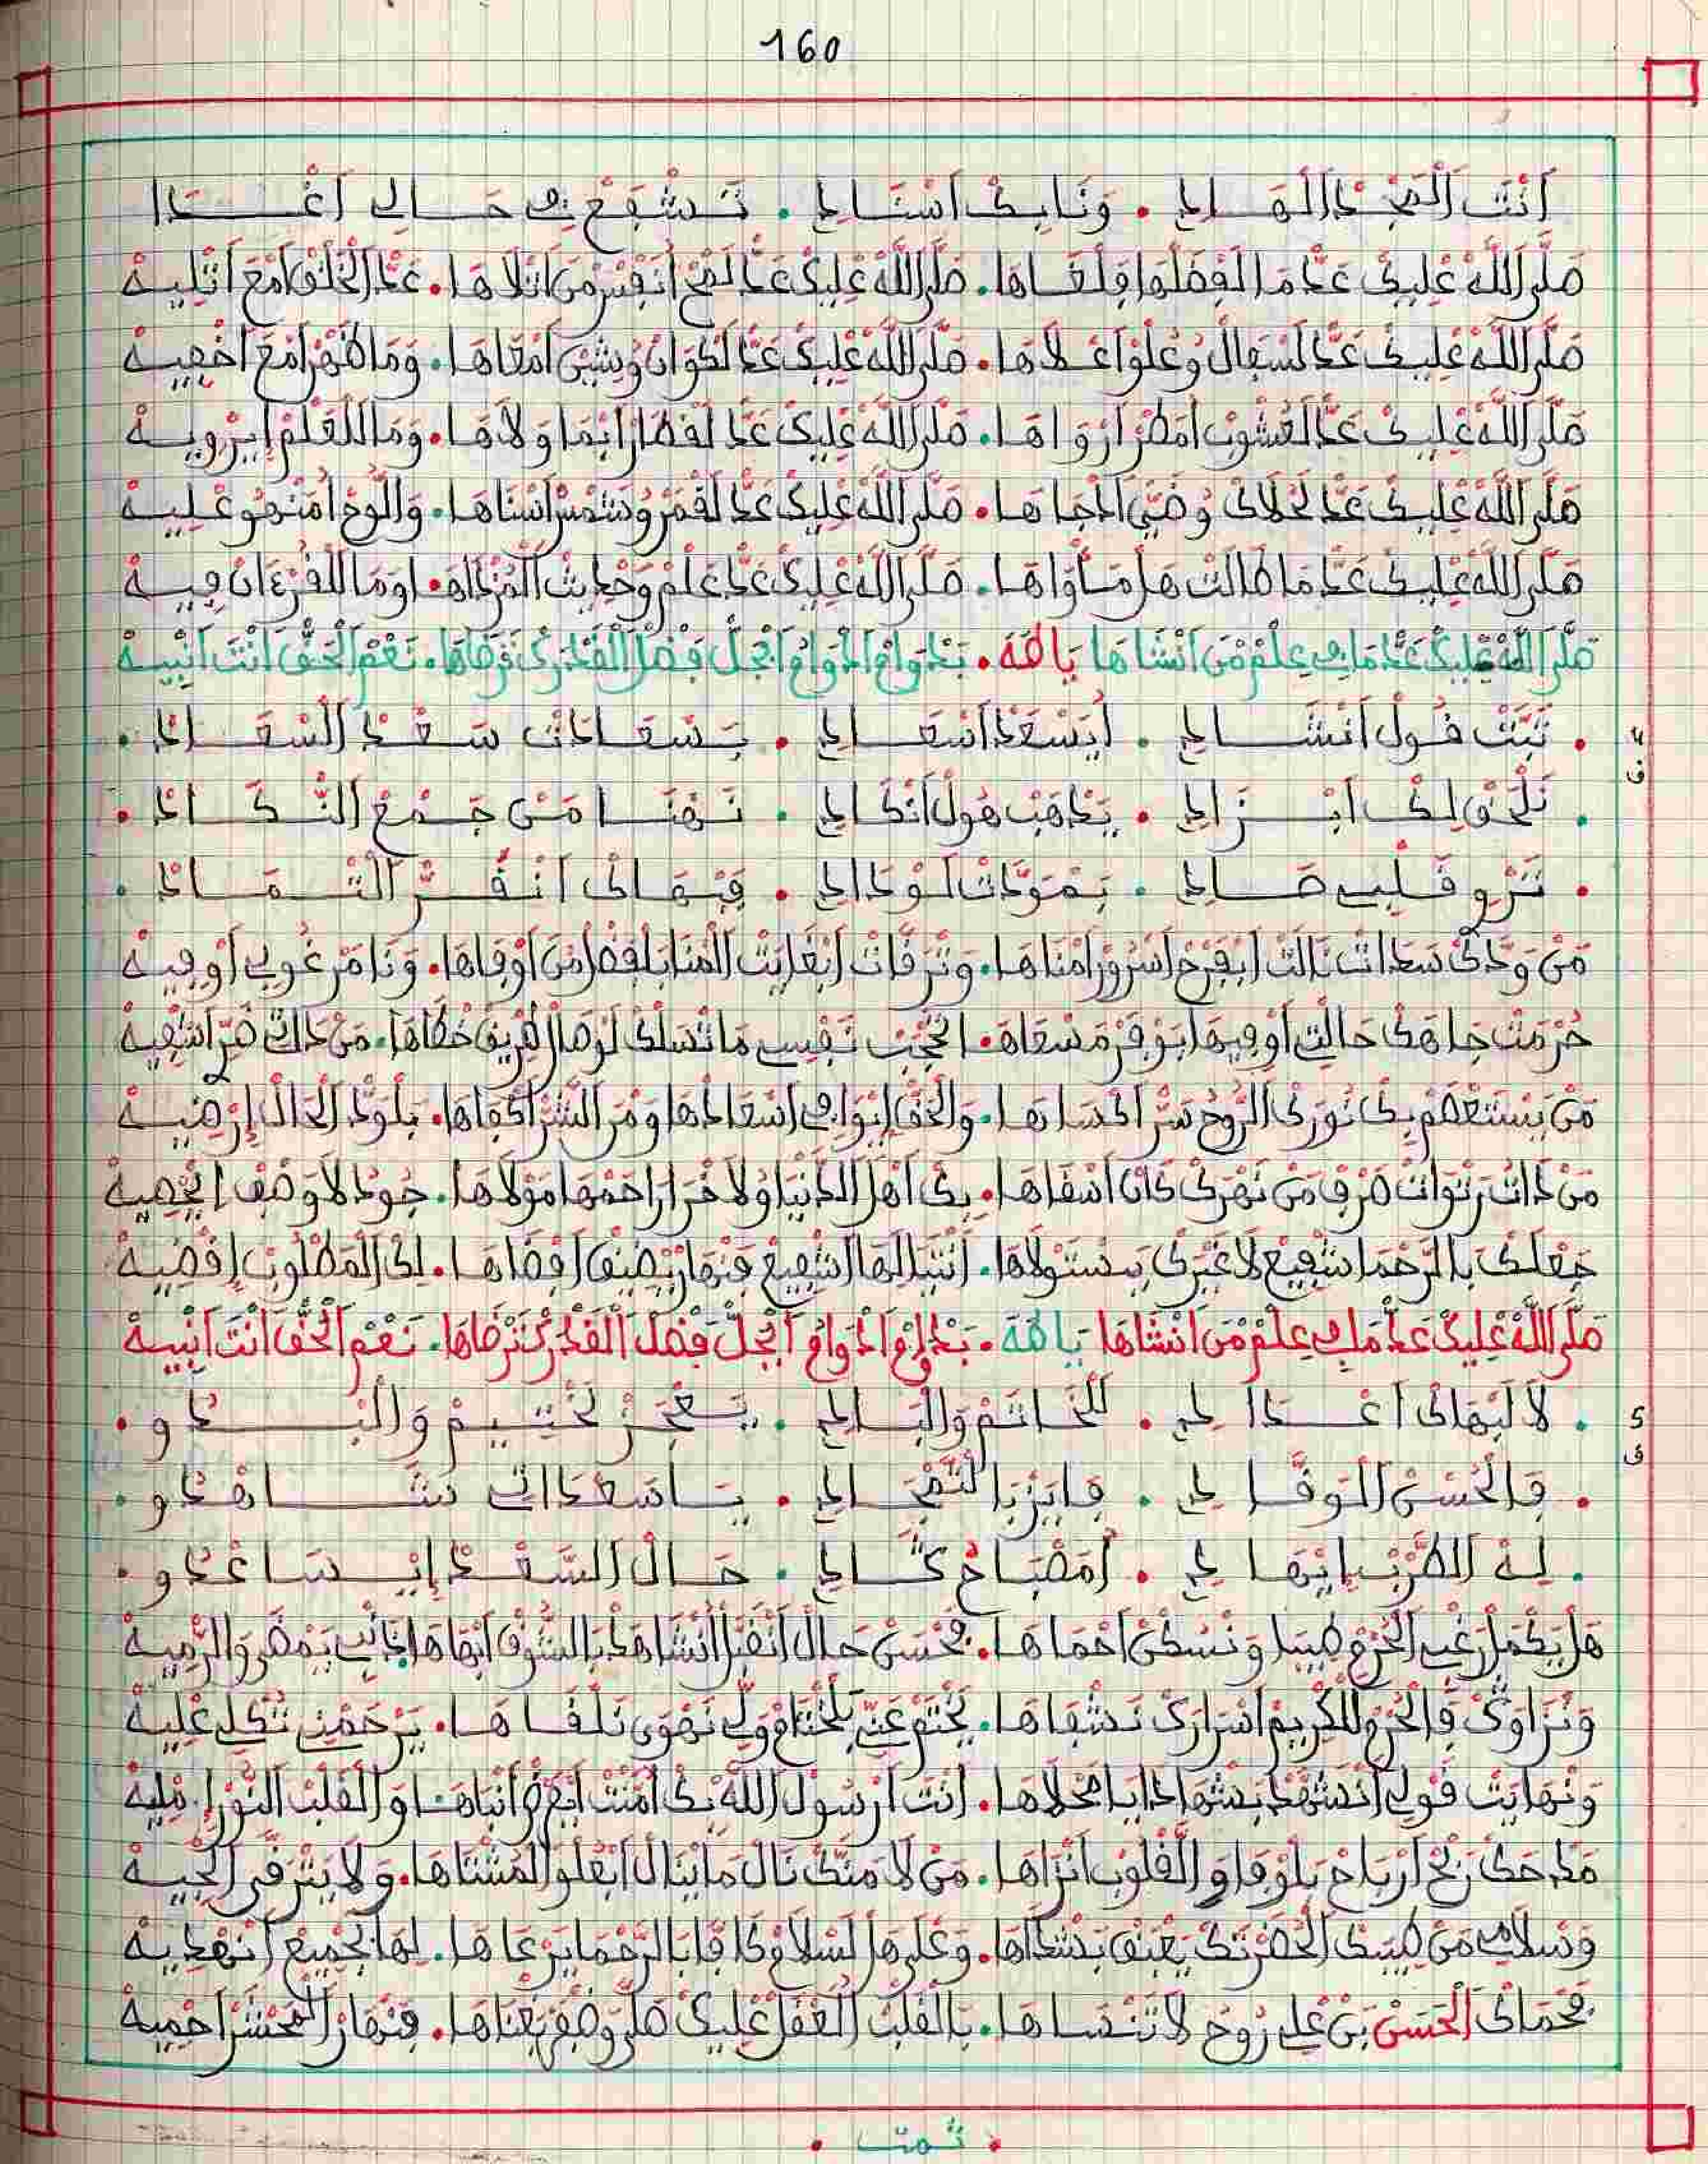 160
أَنْتَ الْمَجْدْ الْهَادِي . وَنَا بِكْ اسْنَادِي . تَشْفَعْ في حَالِي اغْدَا
صَلَّى اللَّهْ عْلِيكْ عَدّْ مَا لَفْضَلْهَا وِلْغَاهَا . صَلَّى اللَّهْ عْلِيكْ عَدّْ أَنْفِسْ مَنْ اتْلَاهَا . عَدّْ الْخَلْقْ امْعَ اتْلِيهْ
صَلَّى اللَّهْ عْلِيكْ عَدّْ لَسْفَالْ وُعْلُوْ اعْلَاهَا . صَلَّى اللَّهْ عْلِيكْ عَدّْ لَكْوَانْ وُشِيّنْ امْعَاهَا . وَمَا ظْهَرْ امْعَ اخْفِيهْ
صَلَّى اللَّهْ عْلِيكْ عَدّْ لَعْشُوبْ امْطَرْ ارْوَاهَا . صَلَّى اللَّهْ عْلِيكْ عَدّْ لَقْطَارْ ابْمَا وَلَاهَا . وَمَا لَلْعَلْمْ ايْرْوِيهْ
صَلَّى اللَّهْ عْلِيكْ عَدّْ لَحْلَاكْ وُضَيّْ ادْجَاهَا . صَلَّى اللَّهْ عْلِيكْ عَدّْ لَقْمَرْ وُشَمْسْ اسْنَاهَا . وَاللُّوحْ امْنْهُو عْلِيهْ
صَلَّى اللَّهْ عْلِيكْ عَدّْ مَا طَالَتْ هَلْ مَأْوَاهَا . صَلَّى اللَّهْ عْلِيكْ عَدّْ عَلْمْ وَحْدِيثْ . وَمَا لَلْقُرْءَانْ فِيهْ
صَلَّى اللَّهْ عْلِيكْ عَدّْ مَا في عِلْمْ مَنْ انْشَاهَا يَا طَهَ . بَدْوَامْ ادْوَامْ ابْجَلّْ فَضْلْ الْقَدْرَكْ تَرْضَاهَا . نَعْمْ الْحَقّْ انْتَ انْبِيهْ
4 ق
. تَبَّتْ قُولْ انْشَادِي . ايَسْعَدْ اسْعَادِي . بَسْعَادَاتْ سَعْدْ السْعَادْ .
. نَلْحَقْ لِكْ ابْزَادِي . يَذْهَبْ هُولْ انْكَادِي . نَهْنَا مَنْ جَمْعْ النْكَادْ .
. تَرْوِ قَلْبِي صَادِي . بَمْوَدَّاتْ لَوْدَادِي . فَبْهَاكْ انْقُرّْ التْمَادْ .
مَنْ وَدَّكْ سَدَاتْ نَالَتْ ابْفَرْحْ اسْرُورْ امْنَاهَا . وَتْرَقَّاتْ ابْغَايَتْ الْمْنَا بَلْفْضَلْ مَنْ اوْفَاهَا . وَنَا مَرْغُوبِي اوْفِيهْ
حُرْمَتْ جَاهَكْ حَالْتِي اوْفِيهَا بَوْفَرْ مَسْعَاهَا . احْجَبْ نَفْسِي مَا تَسْلَكْ لَوْصَالْ طْرِيقْ خْطَاهَا . مَنْ دَاكْ ضَرّْ اشْفِيهْ
مَنْ يَسْتَعْصَمْ بِكْ نُورَكْ الرُّوحْ سَرّْ اكْسَاهَا . وَالْحَقّْ في اسْعَادْهَا وَمَنْ الشَّرّْ اكْفَاهَا . بَلْوَدّْ الْحَالْ ارْضِيهْ
مَنْ ذَاتْ رَتْوَاتْ صَرْفْ مَنْ نَهْرَكْ كَانْ اسْقَاهَا . بِكْ أَهْلْ الدَّنْيَا وُلَاخْرَا رَاحَمْهَا مَوْلَاهَا . جُودْ لَا وَصْفْ ايْحْصِيهْ
جَعْلَكْ بَالرَّحْمَا شْفِيعْ لَا غَيْرَكْ بِسْتَوْلَاهَا . انْتَبَالْهَا الشْفِيعْ فَنْهَارْ يْضِيقْ افْضَاهَا . لِكْ الْمَطْلُوبْ اقْضِيهْ
صَلَّى اللَّهْ عْلِيكْ عَدّْ مَا في عِلْمْ مَنْ انْشَاهَا يَا طَهَ . بَدْوَامْ ادْوَامْ ابْجَلّْ فَضْلْ الْقَدْرَكْ تَرْضَاهَا . نَعْمْ الْحَقّْ انْتَ انْبِيهْ
5 ق
. لَا لَبْهَاكْ اغْدَا لِي . لَلْخَاتَمْ وَالْبَادِي . يَعْجَزْ تَخْتِيمْ وَالْبْدُو .
. فَالْحُسْنْ الْوَقَّادِي . فَايَزْ بَالتَّمْجَادِي . يَا سَعْدَاتِي نْشَاهْدُو .
. لِهْ الطَّرْبْ ايْهَادِي . امَصْبَاحْ كْتَادِي . حَالْ السَّعْدْ ايْسَاعْدُو .
هَلْ يَكْمَلْ رَغْبِي الْحْرَمْ طِيبَا وَنْسْكَنْ احْمَاهَا . بَحْسَنْ حَالْ انْقَبَّلْ انْشَاهَدْ بَالشُّوقْ ابْهَاهَا . يَمْضَى وَالرَّمِيهْ
وَنْزَاوَكْ فَالْحْرَمْ الْكْرِيمْ اسْرَارَكْ نَشْفَاهَا . يَخْتَمْ عَنِّي بَلْخْتَامْ وَلِّي نَهْوَى نَلْقَاهَا . يَرْحَمْنِي نَتْكَلْ عْلِيهْ
وَنْهَايَتْ قَوْلِي انْشَهْدْ بَشْهَادَا يَا مَحْلَاهَا . انْتَ ارَسُولْ اللَّهْ بِكْ امَنْتْ ابْفَرْضْ انْبَاهَا . وَالْقَلْبْ النُّورْ امْلِيهْ
مَدْحَكْ رَبْحْ ارْبَاحْ بَلْوْفَا وَالْقْلُوبْ انْزَاهَا . مَنْ لَا مَنَّكْ نَالْ مَا يْنَالْ ابْعُلُوْ الْمُشْتَاهَا . وَلَا يَتْرَقَّى الْجِيهْ
وَسْلَامِي مَنْ طِيبَكْ الْحَضْرْتَكْ يَعْبَقْ بَشْدَاهَا . وَعْلَى هَلْ لَسْلَامْ كَافَّا بَالرَّحْمَا يَرْعَاهَا . لِهَا بَجْمِيعْ انْهْدِيهْ
بَحْمَاكْ الْحَسَنْ بَنْ عْلِي رُوحْ لَا تَنْسَاهَا . بَالْقَلْبْ الْعْقَلْ عْلِيكْ صَلَّى . فَنْهَارْ الْمَحْشَرْ احْمِيهْ
. تمت .